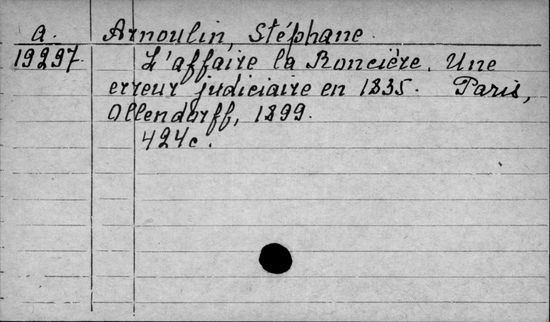 a. Arnoulin, Stéphane
19297. L'affaire la Roncière. Une
erreur judiciaire en 1835. Paris,
Ollendorff, 1899.
424c.